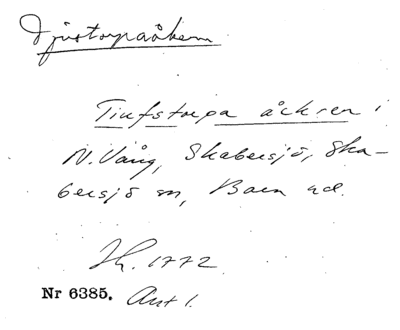 Djustorpaåkern
Tiufstorpa åckren i
N. Vång, Skabersjö, Ska-
bersjö sn, Bara hd.
Jh. 1772
Nr 6385. Akt 1.